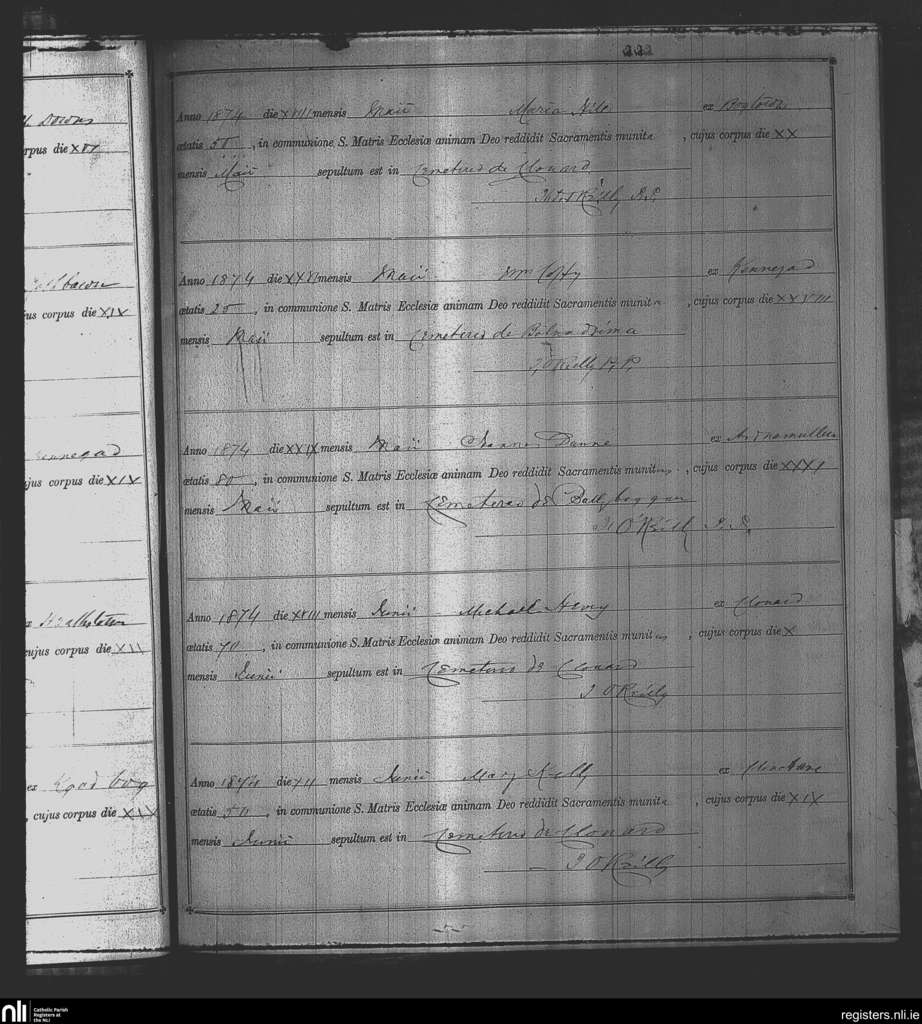 222
Downs
corpus die XVI
cujus corpus die XIX
cujus corpus die XIX
ex
cujus corpus die XII
ex
, cujus corpus die XIX
Anno 1874 die XVIII mensis Maii Maria ex
ætatis 55, in communione S. Matris Ecclesiæ animam Deo reddidit Sacramentis munita , cujus corpus die XX
mensis Maii sepultum est in Cemeterio de Clonard
O'Reilly P.P.
Anno 1874 die XXVI mensis Maii Wm Coffy ex Kennegad
ætatis 25, in communione S. Matris Ecclesiæ animam Deo reddidit Sacramentis munit , cujus corpus die XXVIII
mensis Maii sepultum est in Cemeterio de
J. O'Reilly P.P.
Anno 1874 die XXIX mensis Maii Dunne ex
ætatis 80, in communione S. Matris Ecclesiæ animam Deo reddidit Sacramentis munitus , cujus corpus die XXXI
mensis Maii sepultum est in Cemeterio de Ballyboggan
J. O'Reilly P.P.
Anno 1874 die XVIII mensis Junii Michael ex Clonard
ætatis 70, in communione S. Matris Ecclesiæ animam Deo reddidit Sacramentis munitus , cujus corpus die X
mensis Junii sepultum est in Cemeterio de Clonard
J O'Reilly
Anno 1874 die mensis Junii Mary Kelly ex
ætatis 50, in communione S. Matris Ecclesiæ animam Deo reddidit Sacramentis munita , cujus corpus die XIX
mensis Junii sepultum est in Cemeterio de Clonard
J O'Reilly
nli Catholic Parish
Registers at
the NLI
registers.nli.ie